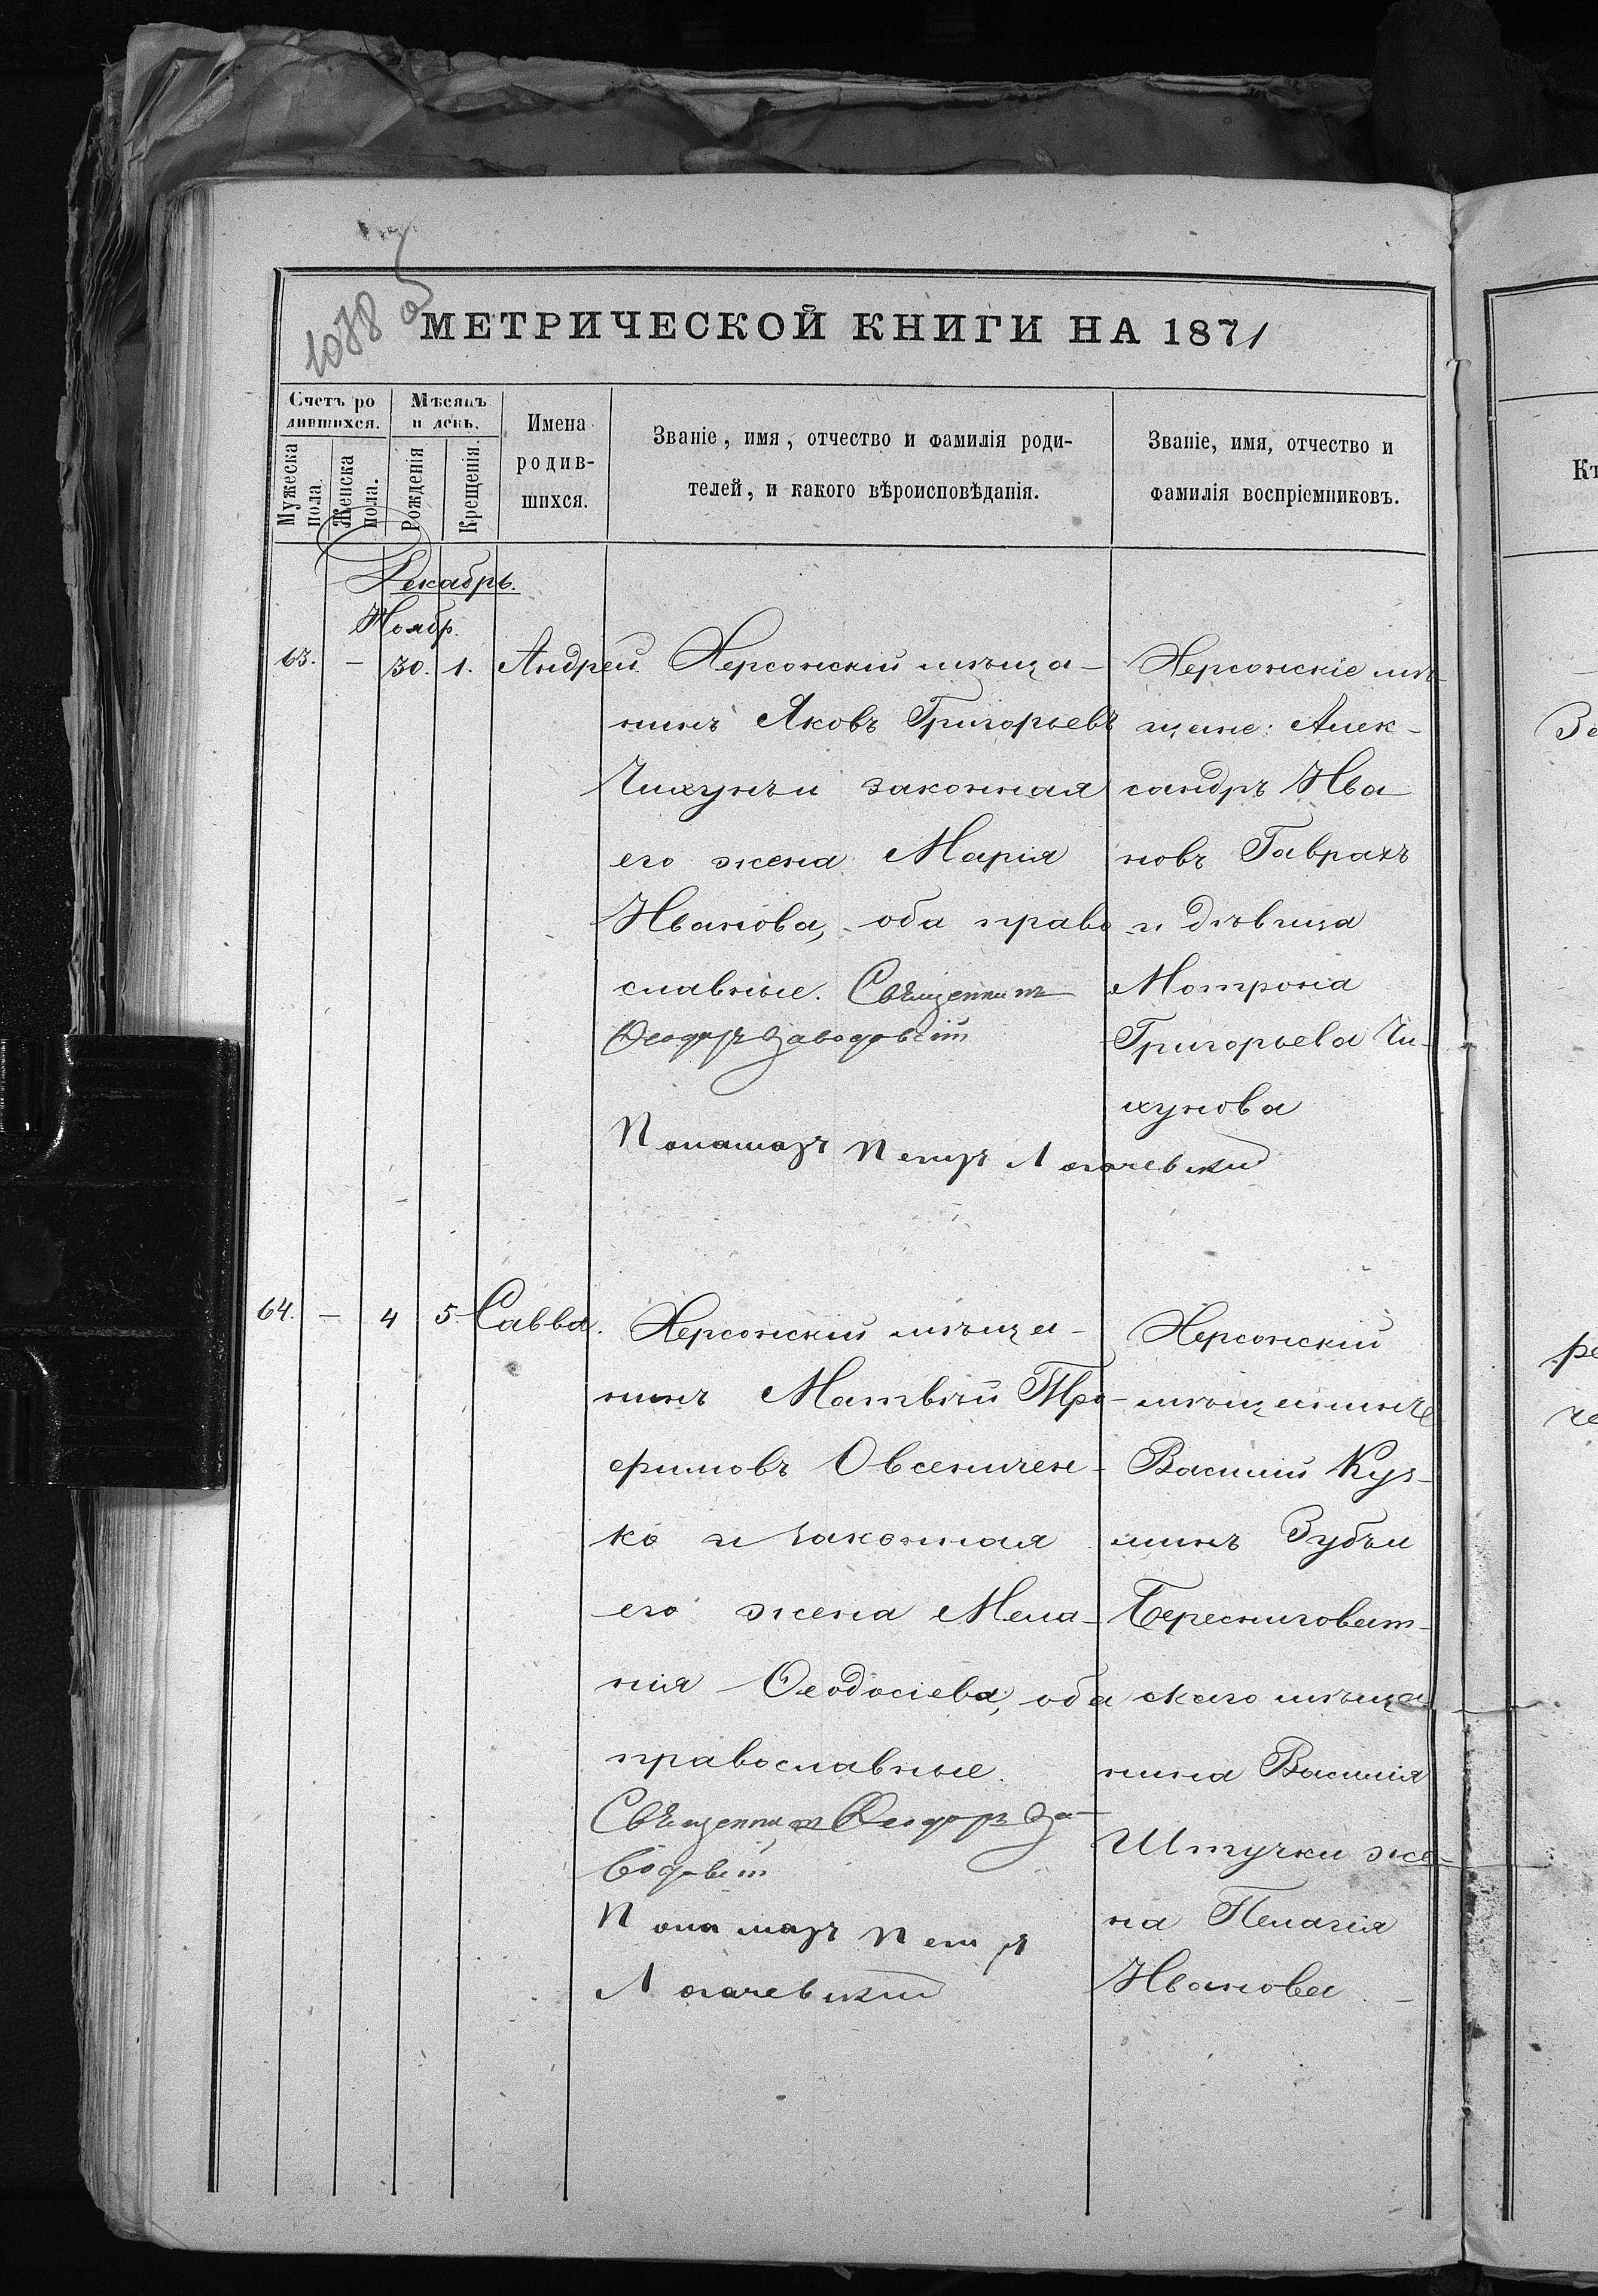 1078 об
МЕТРИЧЕСКОЙ КНИГИ НА 1871
Счетъ ро
дившихся.
Мѣсяцъ
и день.
Мужеска
пола.
Женска
пола.
Рожденія
Крещенія.
Имена
родив-
шихся.
Званіе, имя, отчество и фамилія роди-
телей, и какого вѣроисповѣданія.
Званіе, имя, отчество и
фамилія воспріемниковъ.
Декабрь.
Ноябр.
63. — 30. 1. Андрей.
Херсонскій мѣща-
нинъ Яковъ Григорьевъ
Чихунъ и законная
его жена Марія
Иванова, оба право
славные. Священникъ
Ѳеодоръ Заводовскій
Понамаръ Петръ Логачевскій
Херсонскіе мѣ-
щане: Алек-
сандръ Ива
новъ Гаврахъ
и дѣвица
Мотрона
Григорьева Чи-
хунова
64. — 4 5. Савва.
Херсонскій мѣща-
нинъ Матвѣй Тро-
фимовъ Овсениченко-
ко и законная
его жена Мела-
нія Ѳеодосіева, оба
православные.
Священникъ Ѳеодоръ За-
водовскій
Понамаръ Петръ
Логачевскій
Херсонскій
мѣщанинъ
Василій Куз-
минъ Зубъ и
Бересниговат-
скаго мѣща-
нина Василія
Штучки же-
на Пелагія
Иванова
Къ
За
ре
че